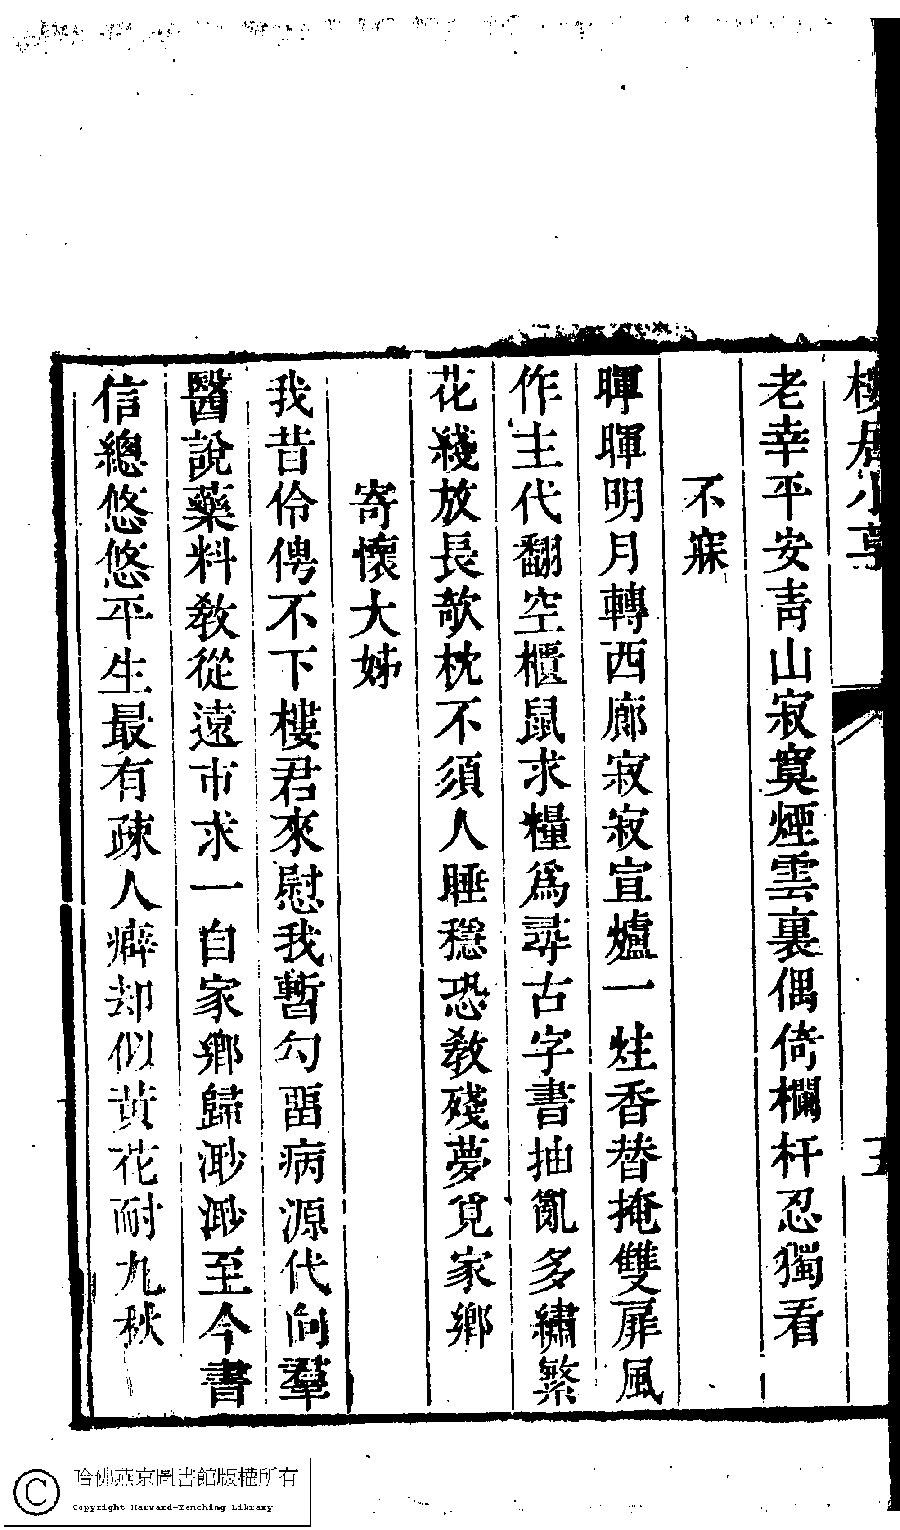 樓居小草
五
老幸平安青山寂寞煙雲裏偶倚欄杆忍獨看
不寐
暉暉明月轉西廊寂寂宣爐一炷香替掩雙扉風
作主代翻空櫃鼠求糧爲尋古字書抽亂多繡繁
花綫放長欹枕不須人睡穩恐教殘夢覓家鄉
寄懷大姊
我昔伶俜不下樓君來慰我暫勾留病源代向羣
醫說藥料教從遠市求一自家鄉歸渺渺至今書
信總悠悠平生最有疎人癖却似黃花耐九秋
哈佛燕京圖書館版權所有
Copyright Harvard-Yenching Library